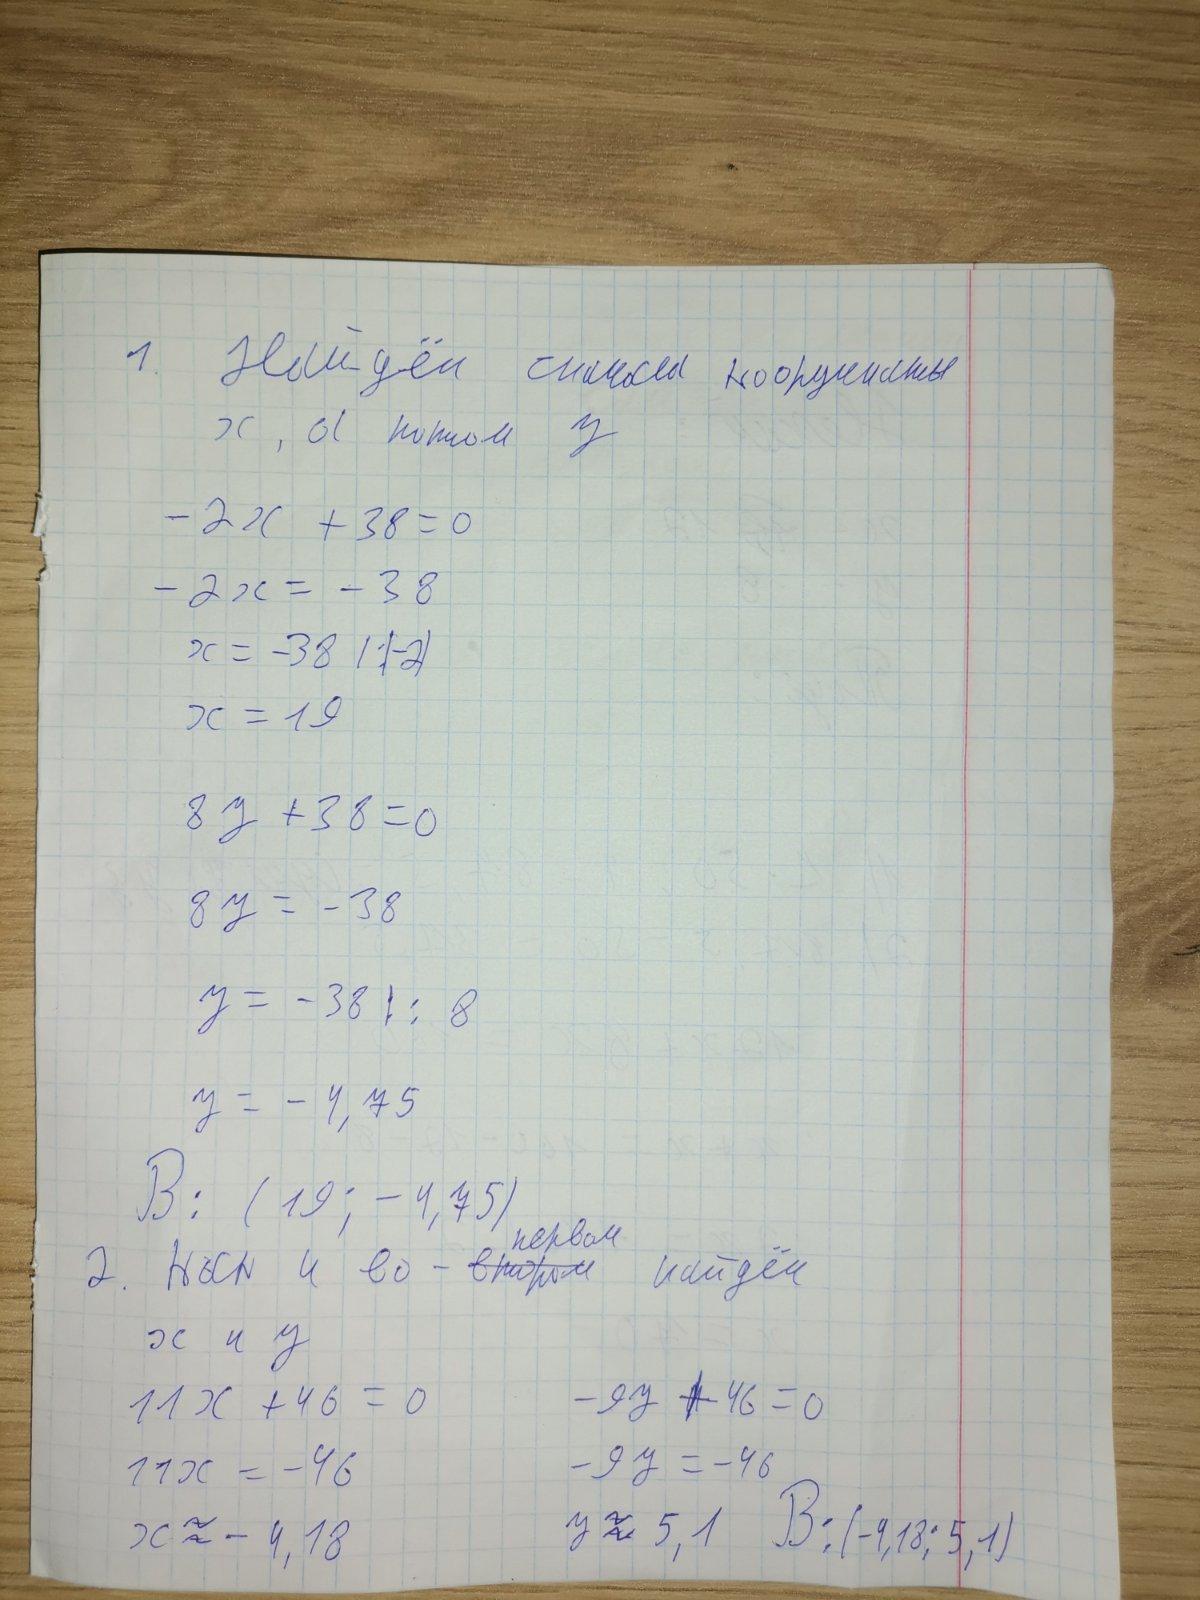 1. Найдём сначала координаты
x, а потом y
-2x + 38 = 0
-2x = -38
x = -38 : (-2)
x = 19
8y + 38 = 0
8y = -38
y = -38 : 8
y = -4,75
В: (19; -4,75)
первом
2. Как и во - втором найдём
x и y
11x + 46 = 0
11x = -46
x ≈ -4,18
-9y + 46 = 0
-9y = -46
y ≈ 5,1
В: (-4,18; 5,1)